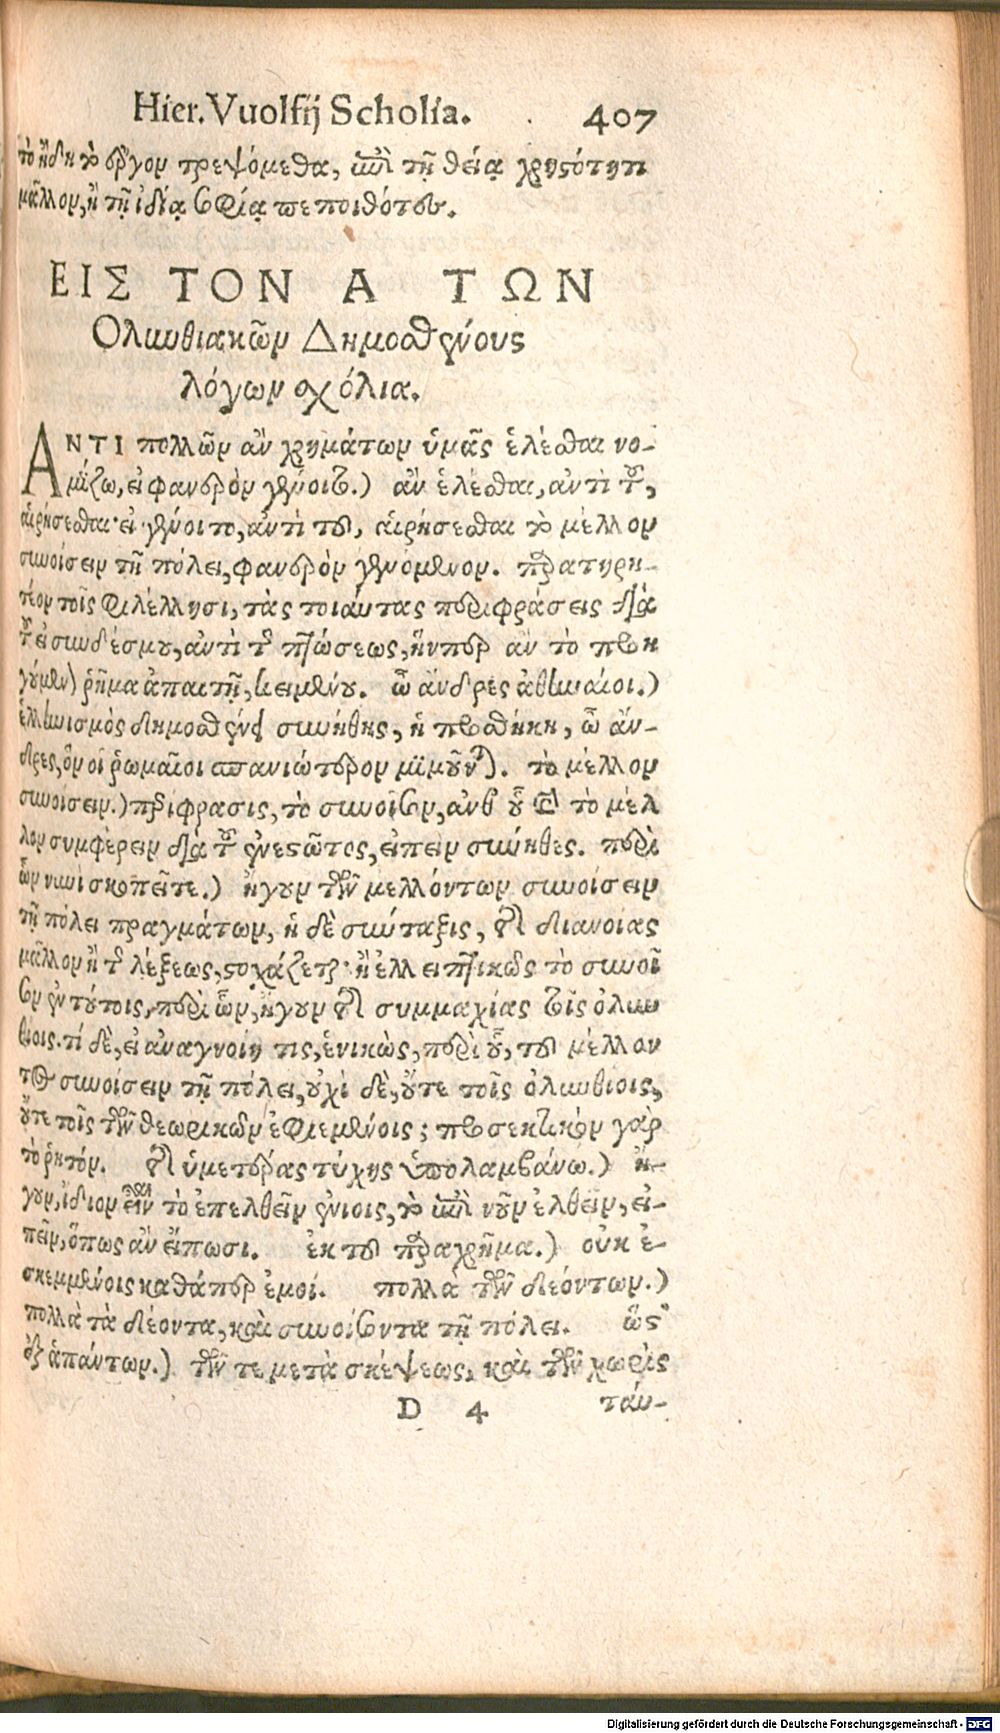 Hier. Vuolfij Scholia. 407
τὸ ἤδη τὸ ἔργον τρεψόμεθα, ἐπὶ τῇ θείᾳ χρηςότητι
μᾶλλον, ἢ τῇ ἰδίᾳ σοφίᾳ πεποιθότες.
ΕΙΣ ΤΟΝ Α ΤΩΝ
Ολυνθιακῶν Δημοσθένους
λόγων σχόλια.
ΑΝΤΙ πολλῶν ἂν χρημάτων ὑμᾶς ἑλέσθαι νο-
μίζω, εἰ φανερὸν γένοιτο.) ἂν ἑλέσθαι, ἀντὶ τοῦ,
αἱρήσεσθαι· εἰ γένοιτο, ἀντὶ τοῦ, αἱρήσεσθαι τὸ μέλλον
συνοίσειν τῇ πόλει, φανερὸν γενόμενον. παρατηρη-
τέον τοῖς φιλέλλησι, τὰς τοιαύτας περιφράσεις διὰ
τοῦ εἰ συνδέσμου, ἀντὶ τῆς πτώσεως, ἥνπερ ἂν τὸ προη
γούμεν) ῥῆμα ἀπαιτῇ, κειμένου. ὦ ἄνδρες ἀθηναῖοι.)
ἑλληνισμὸς δημοσθένει συνήθης, ἡ προσθήκη, ὦ ἄν-
δρες, ὃν οἱ ῥωμαῖοι σπανιώτερον μιμοῦντ). τὸ μέλλον
συνοίσειν.) περίφρασις, τὸ συνοῖσον, ἀνθ' οὗ καὶ τὸ μέλ
λον συμφέρειν διὰ τοῦ ἐνεςῶτος, εἰπεῖν σύνηθες. περὶ
ὧν νυνὶ σκοπεῖτε.) ἤγουν τῶν μελλόντων συνοίσειν
τῇ πόλει πραγμάτων, ἡ δὲ σύνταξις, τῆς διανοίας
μᾶλλον ἢ τῆς λέξεως, ςοχάζεται· ἢ ἐλλειπτικῶς τὸ συνοῖ
σον ἐν τούτοις, περὶ ὧν, ἤγουν τῆς συμμαχίας τοῖς ὀλυν
θίοις. τί δὲ, εἰ ἀναγνοίη τις, ἑνικὼς, περὶ οὗ, τοῦ μέλλον
τος συνοίσειν τῇ πόλει, οὐχὶ δὲ, οὔτε τοῖς ὀλυνθίοις,
οὔτε τοῖς τῶν θεωρικῶν ἐφιεμένοις; προσεκτικὸν γὰρ
τὸ ῥητόν. τῆς ὑμετέρας τύχης ὑπολαμβάνω.) ἤ-
γουν, ἴδιον εἶναι τὸ ἐπελθεῖν ἐνίοις, τὸ ἐπὶ νοῦν ἐλθεῖν, εἰ-
πεῖν, ὅπως ἂν εἴπωσι. ἐκ τοῦ παραχρῆμα.) οὐκ ἐ-
σκεμμένοις καθάπερ ἐμοί. πολλὰ τῶν δεόντων.)
πολλὰ τὰ δέοντα, καὶ συνοίσοντα τῇ πόλει. ὥς'
ἐξ ἁπάντων.) τῶν τε μετὰ σκέψεως, καὶ τῶν χωρὶς
D 4 ταύ-
Digitalisierung gefördert durch die Deutsche Forschungsgemeinschaft - DFG